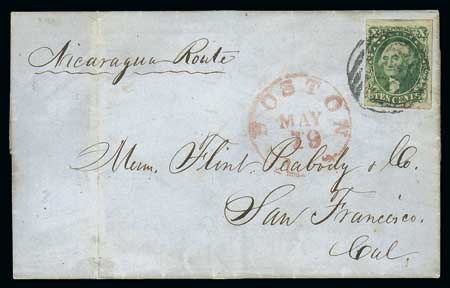 Nicaragua Route
X X
TEN CENTS
BOSTON
MAY
Messrs. Flint, Peabody & Co.
San Francisco.
Cal